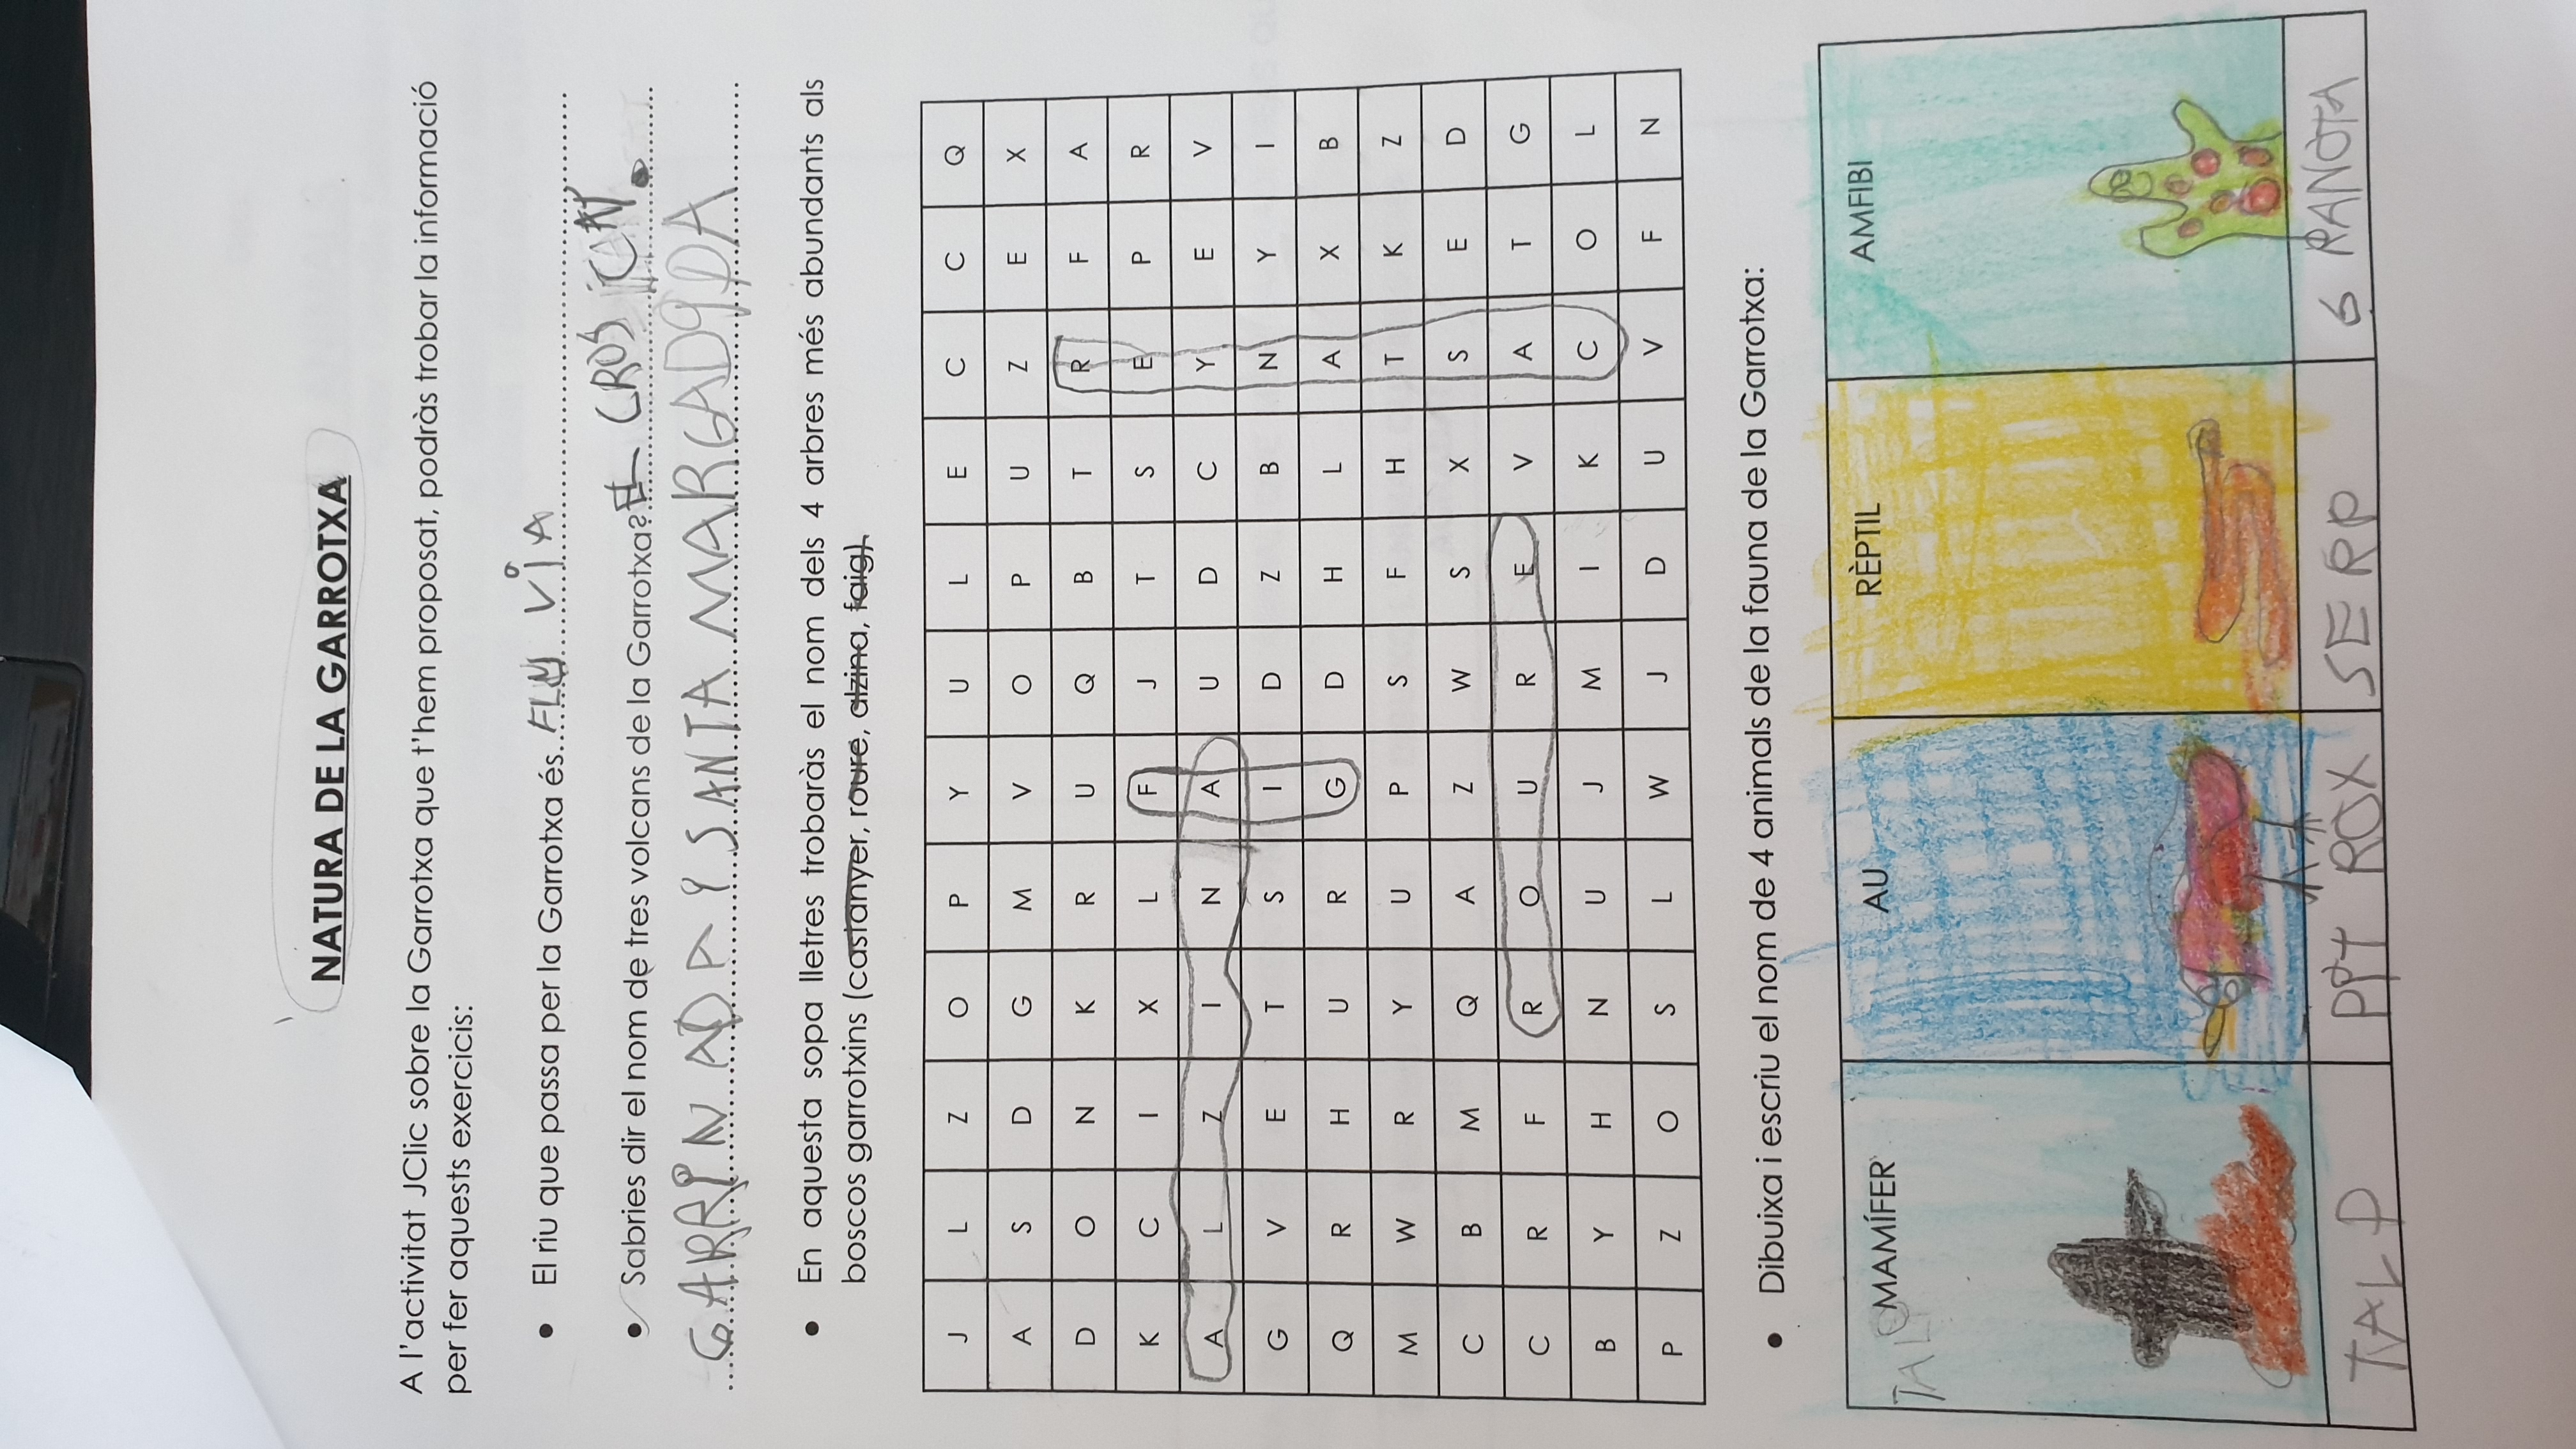 NATURA DE LA GARROTXA
A l'activitat JClic sobre la Garrotxa que t'hem proposat, podràs trobar la informació
per fer aquests exercicis:
• El riu que passa per la Garrotxa és FLU VIA
• Sabries dir el nom de tres volcans de la Garrotxa? EL CROSCAT
GARRINADA I SANTA MARGADIDA
• En aquesta sopa lletres trobaràs el nom dels 4 arbres més abundants als
boscos garrotxins (castanyer, roure, alzina, faig).
J L Z O P Y U L E C C Q
A S D G M V O P U Z E X
D O N K R U Q B T R F A
K C I X L F J T S E P R
A L Z I N A U D C Y E V
G V E T S I D Z B N Y I
Q R H U R G D H L A X B
M W R Y U P S F H T K Z
C B M Q A Z W S X S E D
C R F R O U R E V A T G
B Y H N U J M I K C O L
P Z O S L W J D U V F N
• Dibuixa i escriu el nom de 4 animals de la fauna de la Garrotxa:
MAMÍFER AU RÈPTIL AMFIBI
TALP
TALP PIT ROX SERP GRANOTA